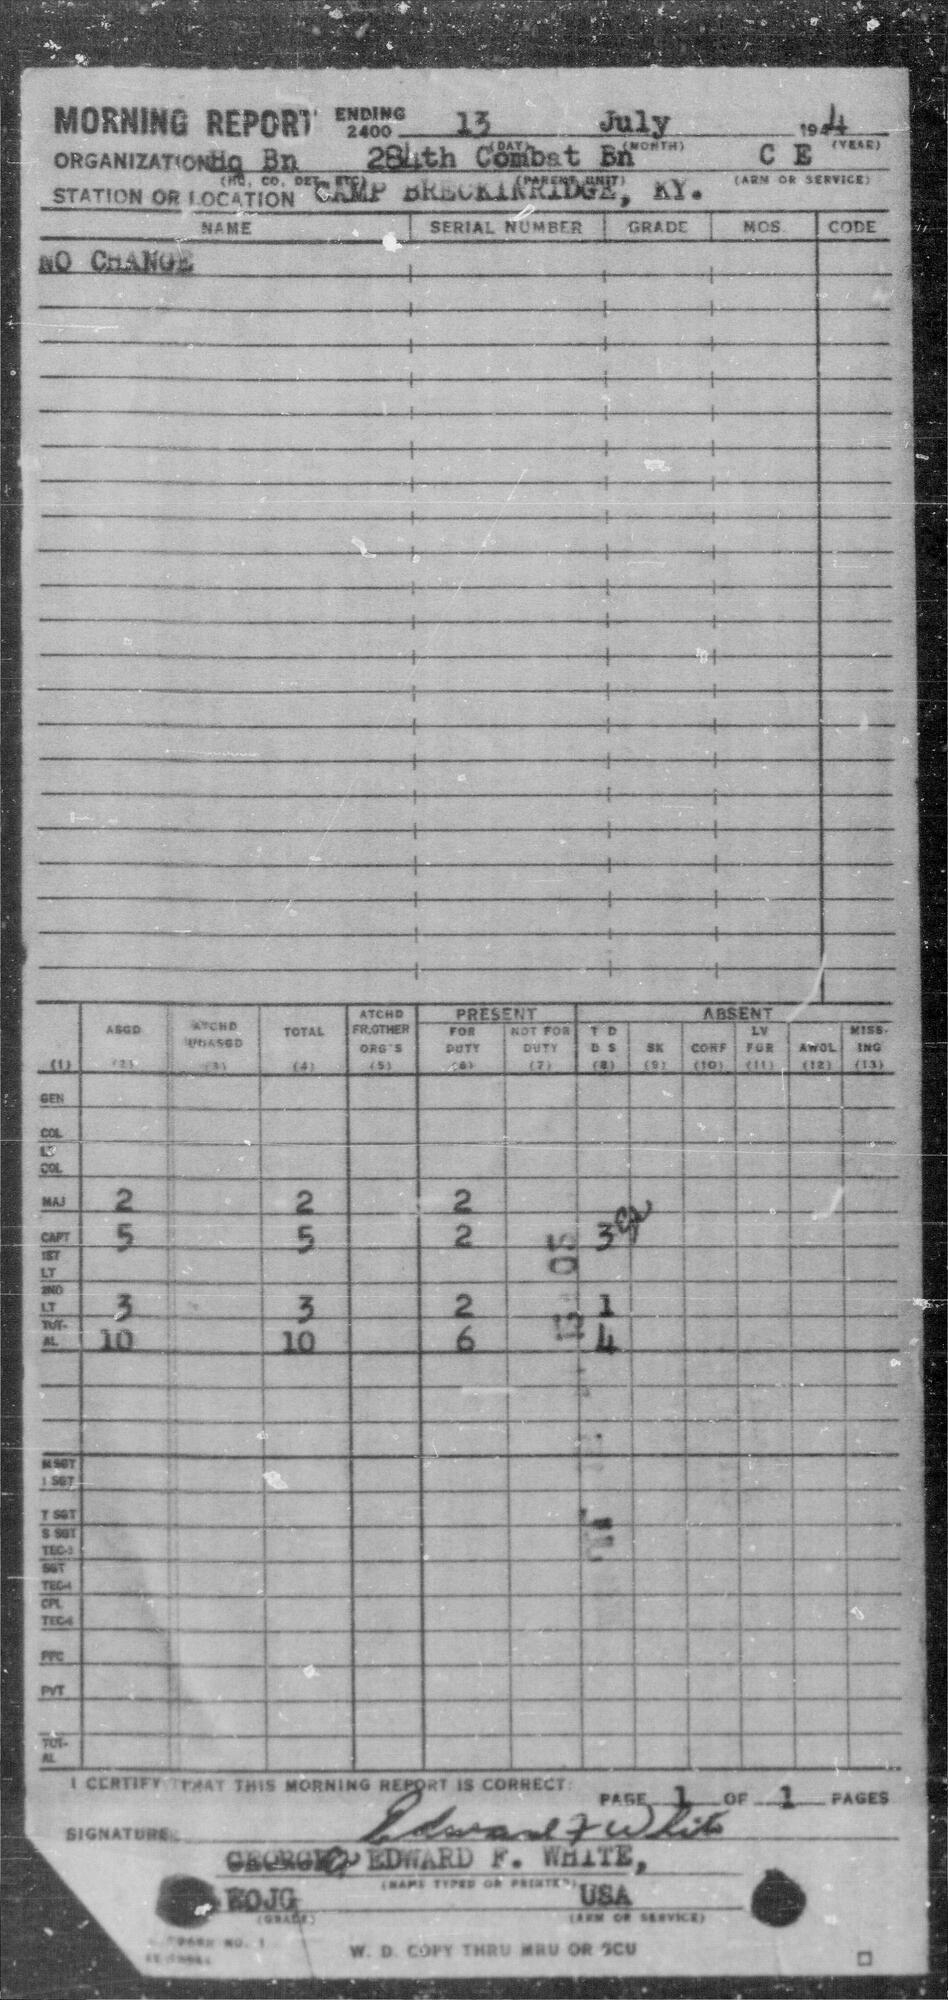 MORNING REPORT ENDING 2400 13 July 1944
(DAY) (MONTH) (YEAR)
ORGANIZATION Hq Bn 284th Combat Bn C E
(HQ, CO, DET, ETC) (PARENT UNIT) (ARM OR SERVICE)
STATION OR LOCATION CAMP BRECKINRIDGE, KY.
NAME SERIAL NUMBER GRADE MOS. CODE
NO CHANGE
PRESENT ABSENT
ASGD ATCHD UNASGD TOTAL ATCHD FR.OTHER ORG'S FOR DUTY NOT FOR DUTY T D D S SK CONF LV FUR AWOL MISS-ING
(1) (2) (3) (4) (5) (6) (7) (8) (9) (10) (11) (12) (13)
GEN
COL
LT COL
MAJ 2 2 2
CAPT 5 5 2 3
1ST LT
2ND LT 3 3 2 1
TOT-AL 10 10 6 4
M SGT
1 SGT
T SGT
S SGT
TEC-3
SGT
TEC-4
CPL
TEC-5
PFC
PVT
TOT-AL
I CERTIFY THAT THIS MORNING REPORT IS CORRECT:
PAGE 1 OF 1 PAGES
SIGNATURE Edward F White
GEORGE EDWARD F. WHITE,
(NAME TYPED OR PRINTED)
WOJG USA
(GRADE) (ARM OR SERVICE)
FORM NO. 1
W. D. COPY THRU MRU OR SCU